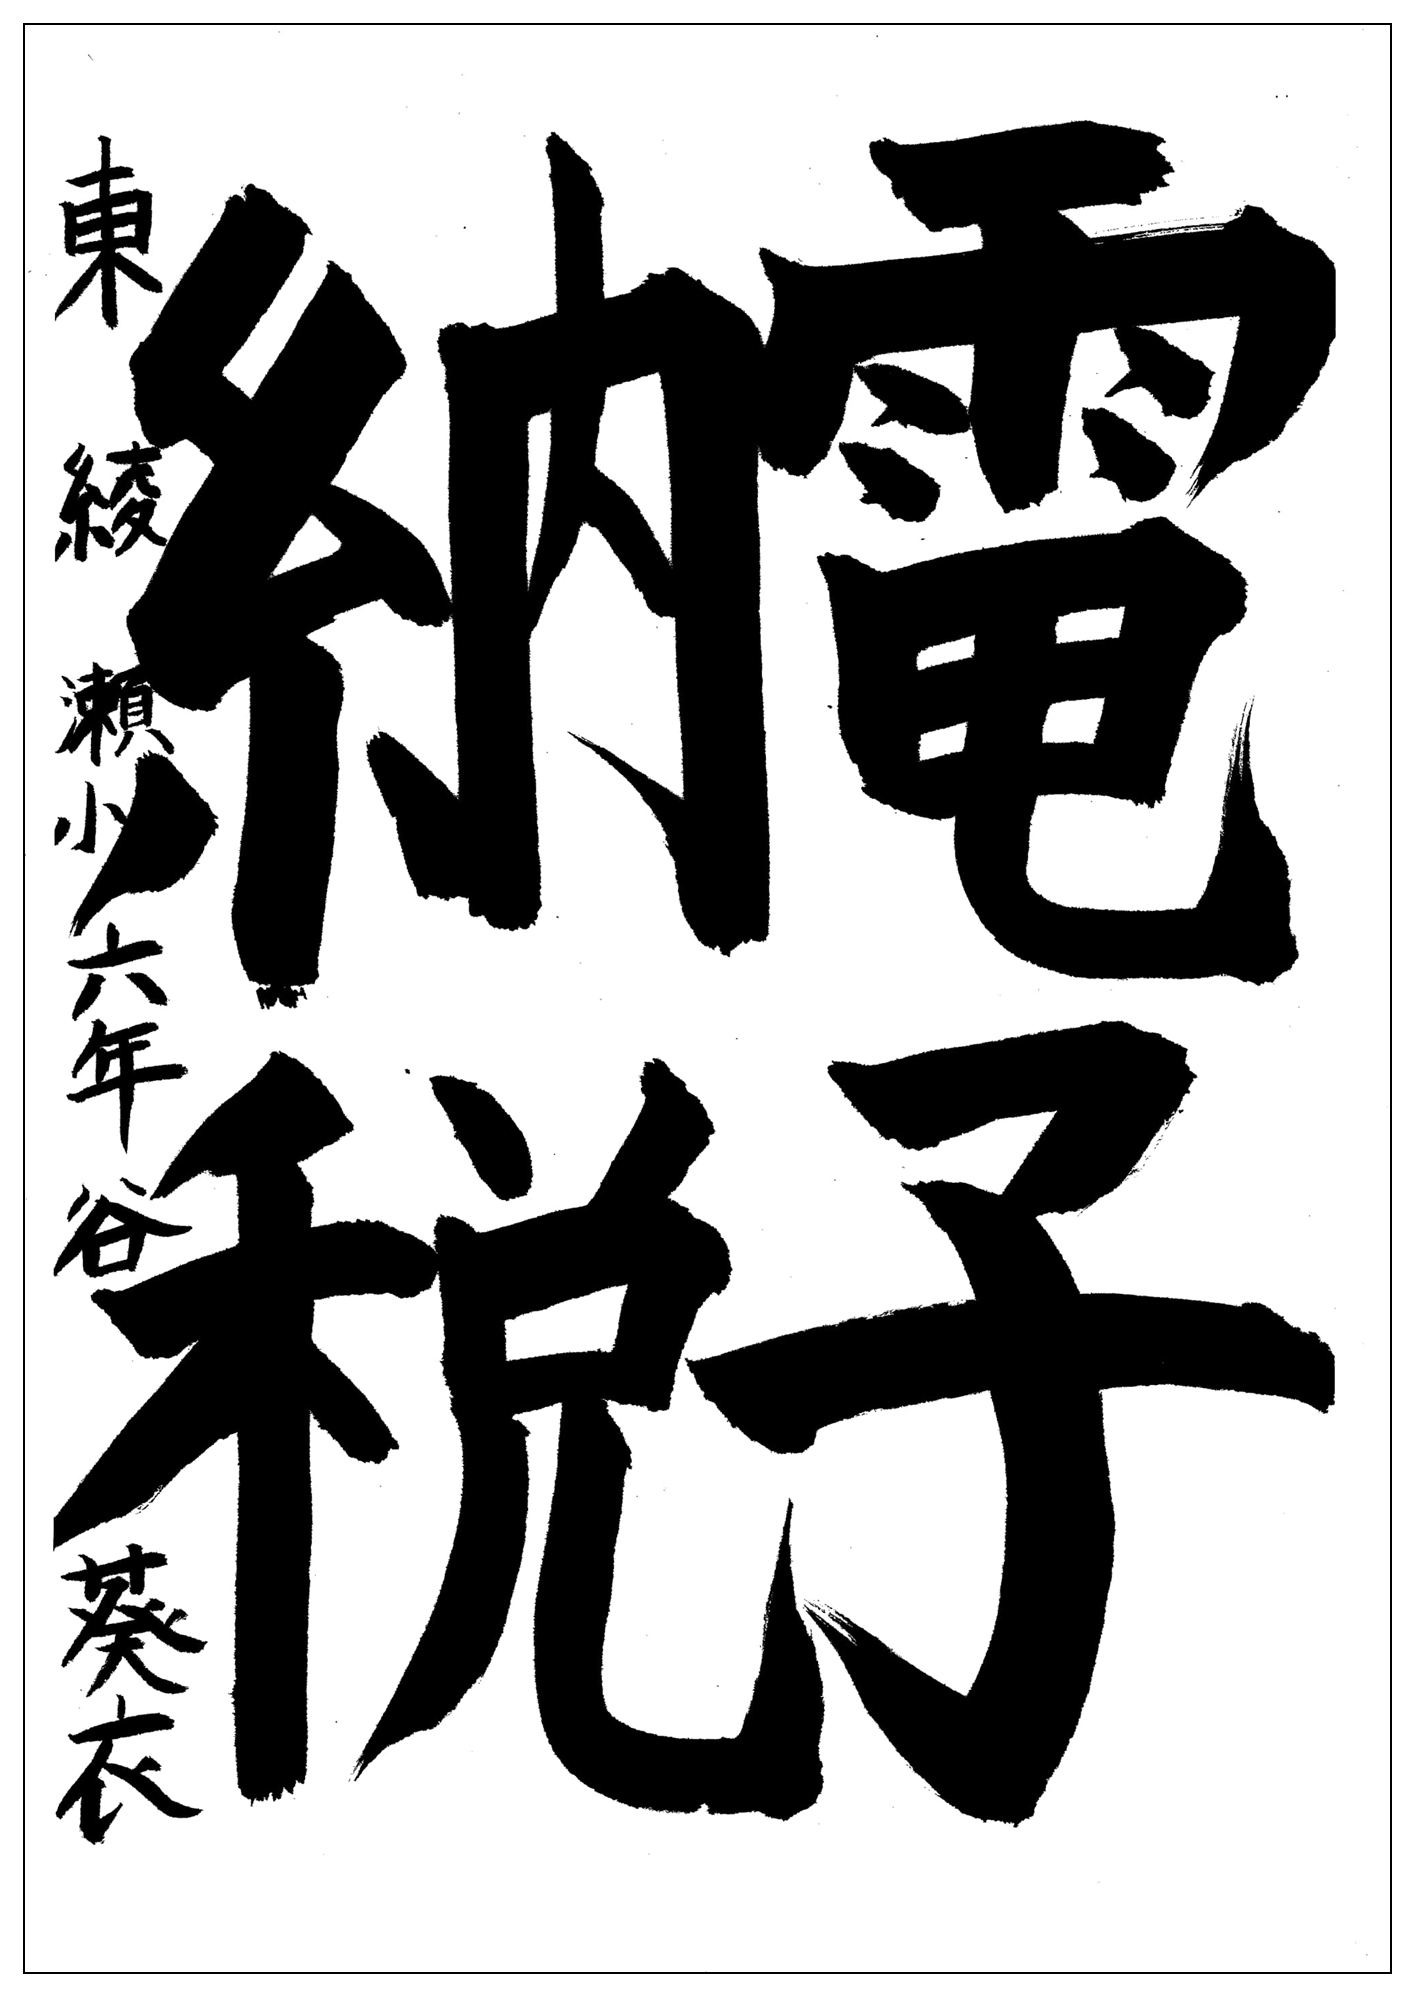 電子
納税
東綾瀬小六年谷葵衣